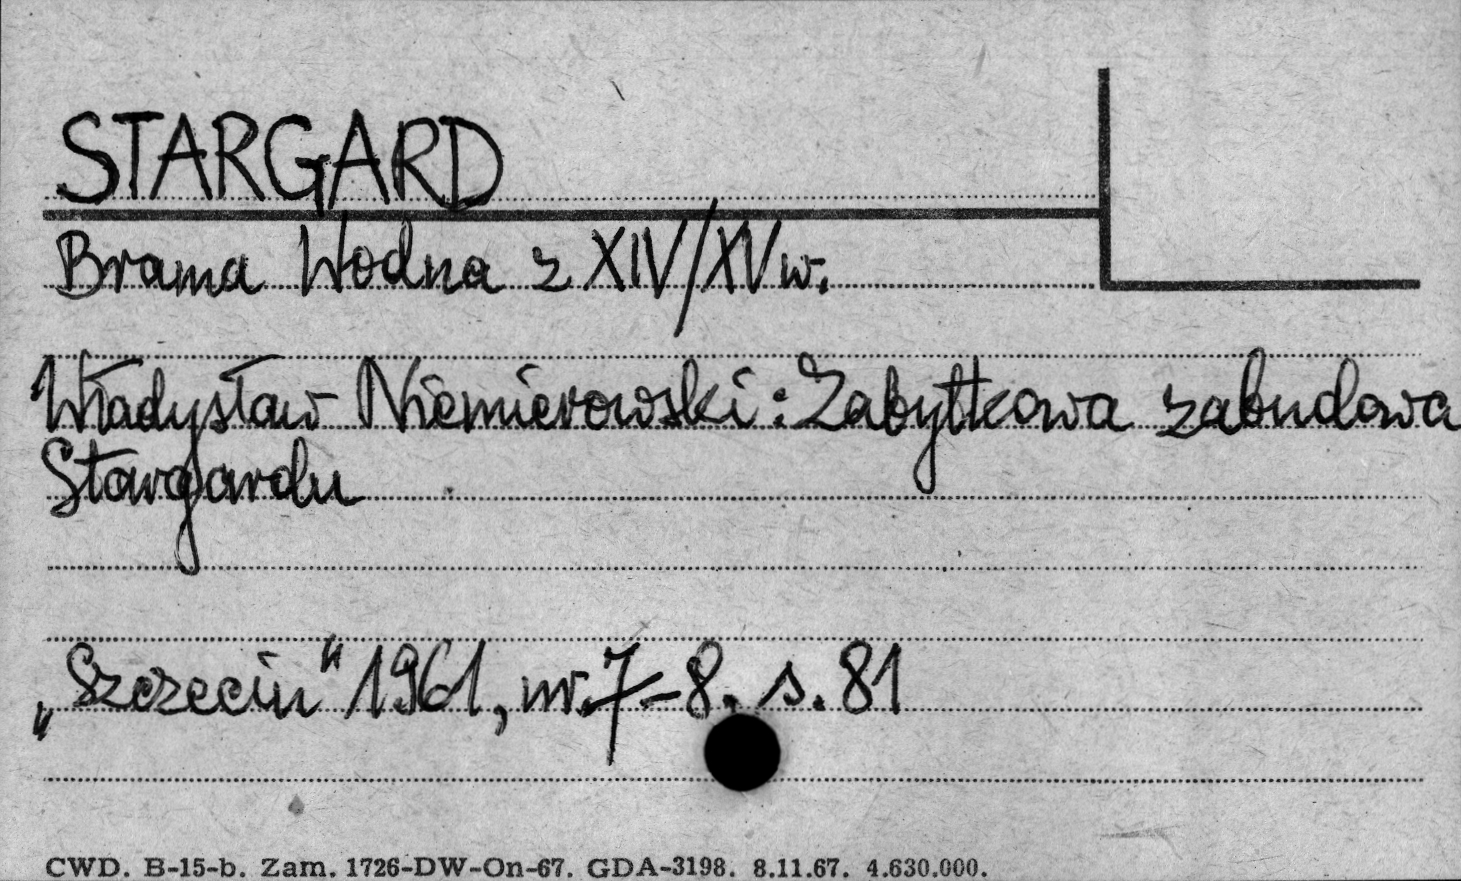 STARGARD
Brama Wodna z XIV/XV w.
Władysław Niemierowski: Zabytkowa zabudowa
Stargardu
„Szczecin" 1961, nr. 7-8, s. 81
CWD. B-15-b. Zam. 1726-DW-On-67. GDA-3198. 8.11.67. 4.630.000.